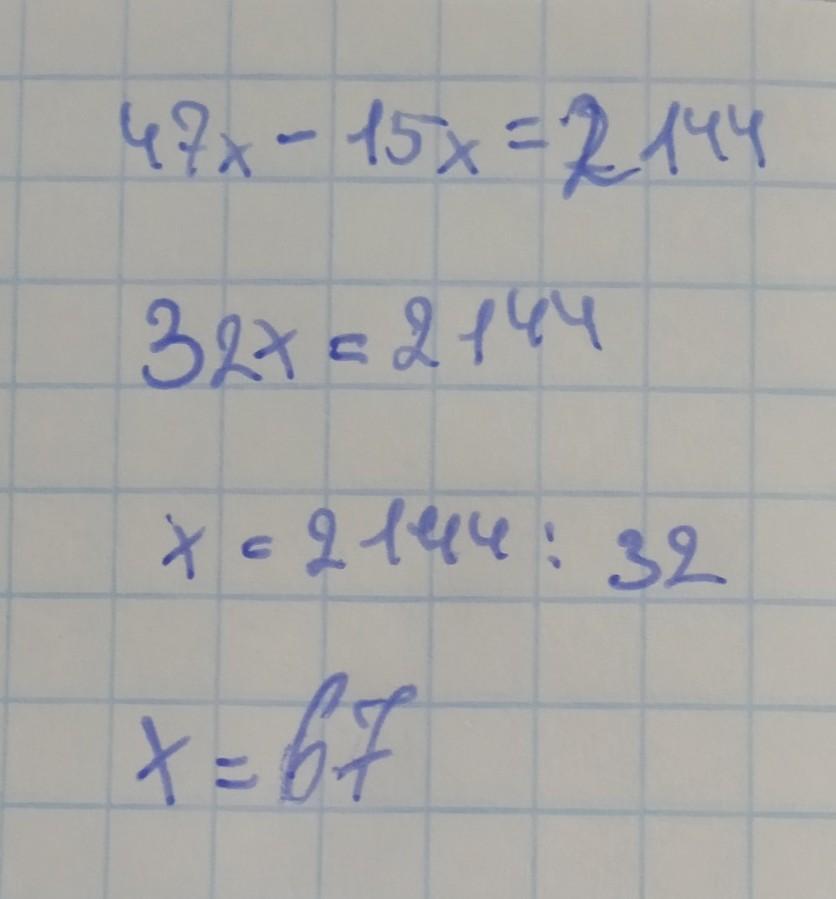 47x - 15x = 2144
32x = 2144
x = 2144 : 32
x = 67